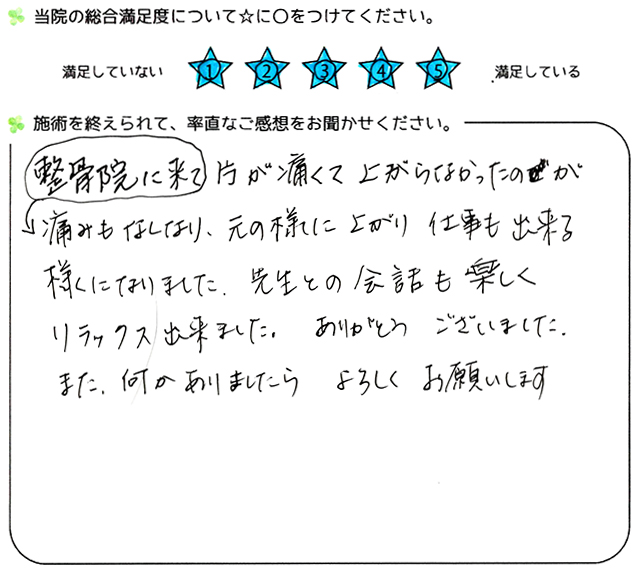 当院の総合満足度について☆に○をつけてください。
満足していない 1 2 3 4 5 満足している
施術を終えられて、率直なご感想をお聞かせください。
整骨院に来て 片が痛くて上がらなかったのが
痛みもなしなり、元の様てに上がり 仕事も出来る
様くになりました. 先生との会話も楽しく
リラックス出来ました。 ありがとう ございました.
また、何かありましたら よろしく お願いします